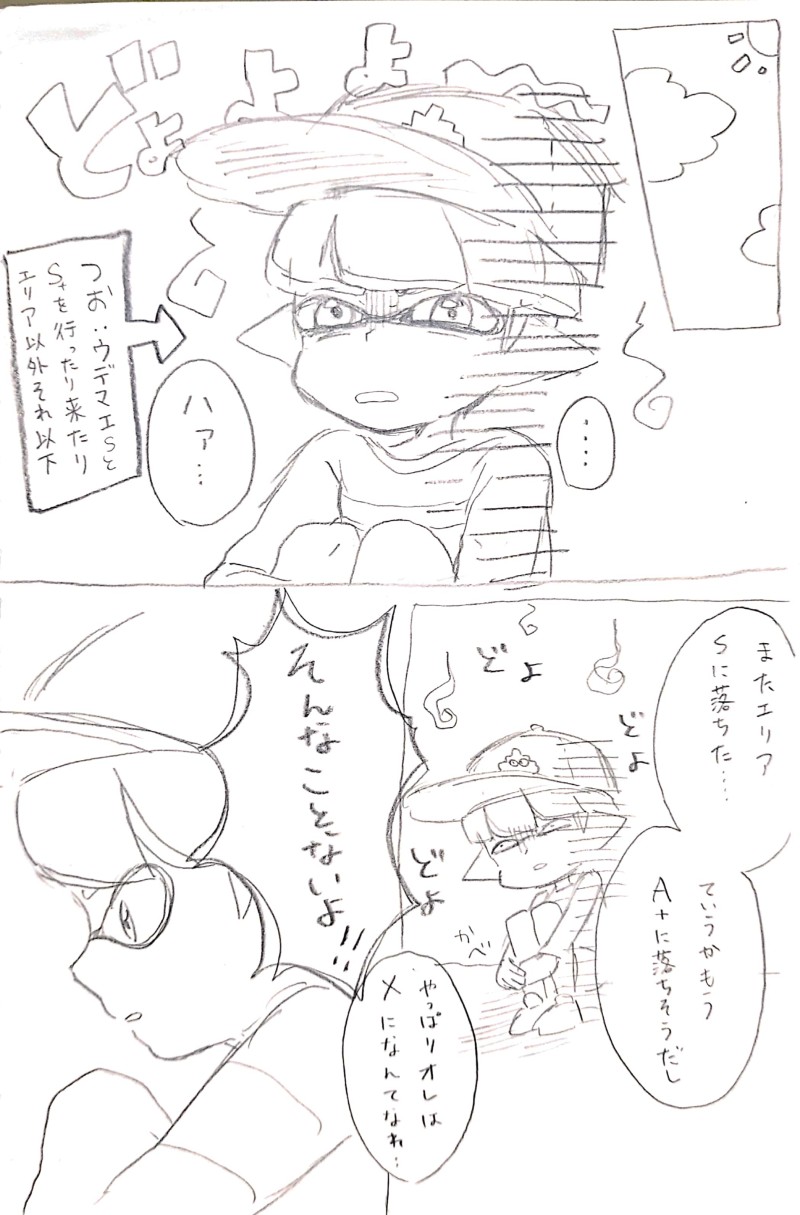 どよよよ
つお‥ウデマエSと
S+を行ったり来たり
エリア以外それ以下
‥‥
ハァ…
またエリア
Sに落ちた……
ていうかもう
A+に落ちそうだし
どよ
どよ
どよ
かべ
やっぱりオレは
Xになんてなれ…
そんなことないよ!!